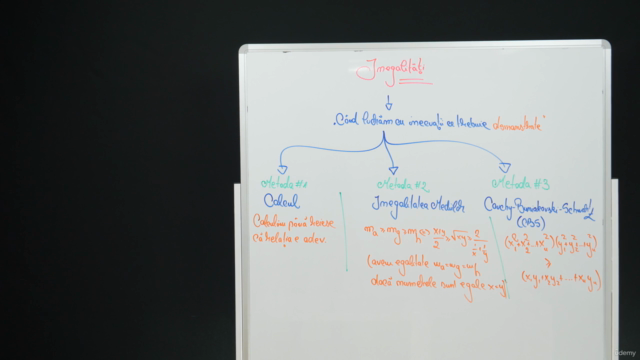 Inegalități
„Când lucrăm cu inecuații ce trebuie demonstrate"
Metoda #1
Calcul
Calculăm până
că relația e adev.
Metoda #2
Inegalitatea Mediilor
ma ≥ mg ≥ mh ⇔ x+y/2 ≥ √xy ≥ 2/(1/x+1/y)
(avem egalitate ma=mg=mh
dacă numerele sunt egale x=y)
Metoda #3
Cauchy-Buniakovski-Schwarz
(CBS)
(x₁²+x₂²+...+xₙ²)(y₁²+y₂²+...+yₙ²)
≥
(x₁y₁+x₂y₂+...+xₙyₙ)
udemy